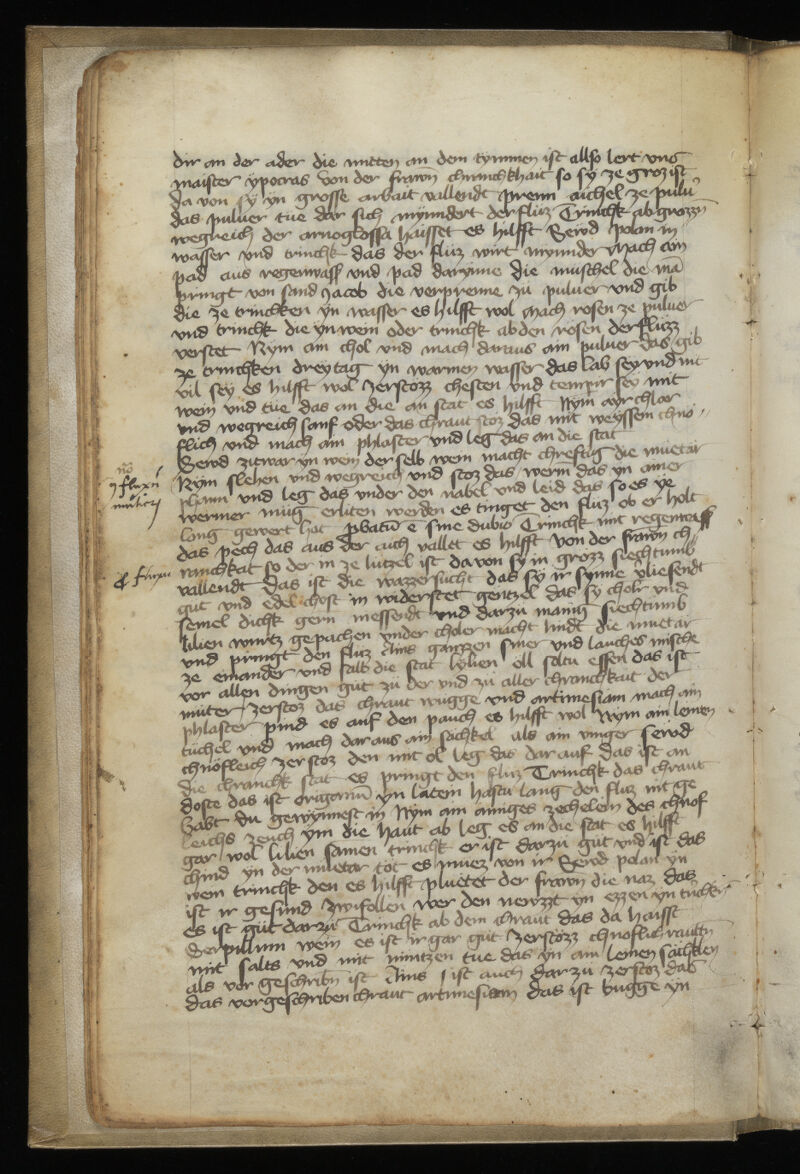 dir an der ader die mitten an dem tynnnen ist allso lert vns
maister ypocras von der frawn chrinchkhait so sy ze groz ist
da von sy yn grosse arbait vallendt prenn aichel ze pulu
das puluer tue dar sich mynndert der fluz Trinchk ab grozzn
wegreich der arnoglossa haisset es hilfft Sewd polan in
wasser vnd trinchk das der fluz wirt mynnder Mach ain
pad aus regenwass vnd pad darynne die muschel die mā
pringt von sand Jacob die verprenne zu puluer vnd gib
die ze trinchken yn wasser es hilfft wol Mach rosen ze puluer
vnd trinchk die yn wein oder trinchk ab den rosen der fluzz
verstet Nym ain chol vnd mach daraus ain puluer das gib
ze trinchken drey tag yn warmen wasser das lab sey vnd nit
vil sey es hilfft wol zerstozz chesten vnd tempir sey mit
wein vnd tue das an die an stat es hilfft Nym ayrchlar
vnd wegreich sauf oder das chraut stoz das mit weyssem chno
flich vnd mach ain phlaster vnd leg das an die stat
Sewd zitwar yn wein derselb wein macht chrefftig die muetar
Nym slehen vnd wegreich vnd stoz das werm das yn ainer
phann vnd leg das vnder den nabel vnd leid das so es ye
wermer mug erliten werden es tinget den fluz ob er holt
long gewert hat pbatū e sine dubio Trinchk mit regenwass
das pech das aus der aich vallet es hilfft von der frawn ch
ranchkat so der in ze lutzel ist da von sy in grozz siechtumb
vallendt das ist die wazzersucht das sy ir synne vliesendt
gut vnd edel chost in widerstet gentzel das sy cholr vnd
semel dichk gern messendt vnd darzu manig siechtumb
lilien wurtz gepachen vnder choler macht lindt die muetar
vnd pringt den fluz Anis gantzen smer vnd lauches mische
ze einander vnd salb die stat lylien oll soltu essen das ist
vor allen dingen gut zu der vnd zu aller chranchkait der
muter zerstoz das chraut wugge vnd artimesiam mach ain
phlaster pind es auf den pauch es hilfft wol Nym ain leinen
tuchel vnd mach daraus ain sachkel als ain vinger sewd
chnofleich zerstoz den mit ol leg das dar auf das ist an
die chranchk stat es pringt den fluz Trinchk das chraut
doste das ist origanū yn latein hastu lang den fluz nit ge
habt du gewynnest in Nym ain ainiges zechelein des chnof
leichs zeuch ym die haut ab leg es an die stat es hilfft
gar wol lilien samen trinchk er ist darzu gut vnd ist das
chind yn der muetar tot es muez von ir Sewd polan yn
wein trinchk den es hilfft pluetet der frawn die naz das
ist ir gesund zwifollen wer den newzzt yn ezzen yn trinchk
es ist gut darzu Trinchk ab dem chraut das da haisst
Serpillum wein es ist ir gar gut zerstozz chnoflic rautn
mit salts vnd mit minitzen tue das yn ain leinen sachklen
als vor geschribn ist Anis ist auch darzu zerstoz das
das vorgeschriben chraut artimesiam das ist bugge yn
fluxū
fluxū